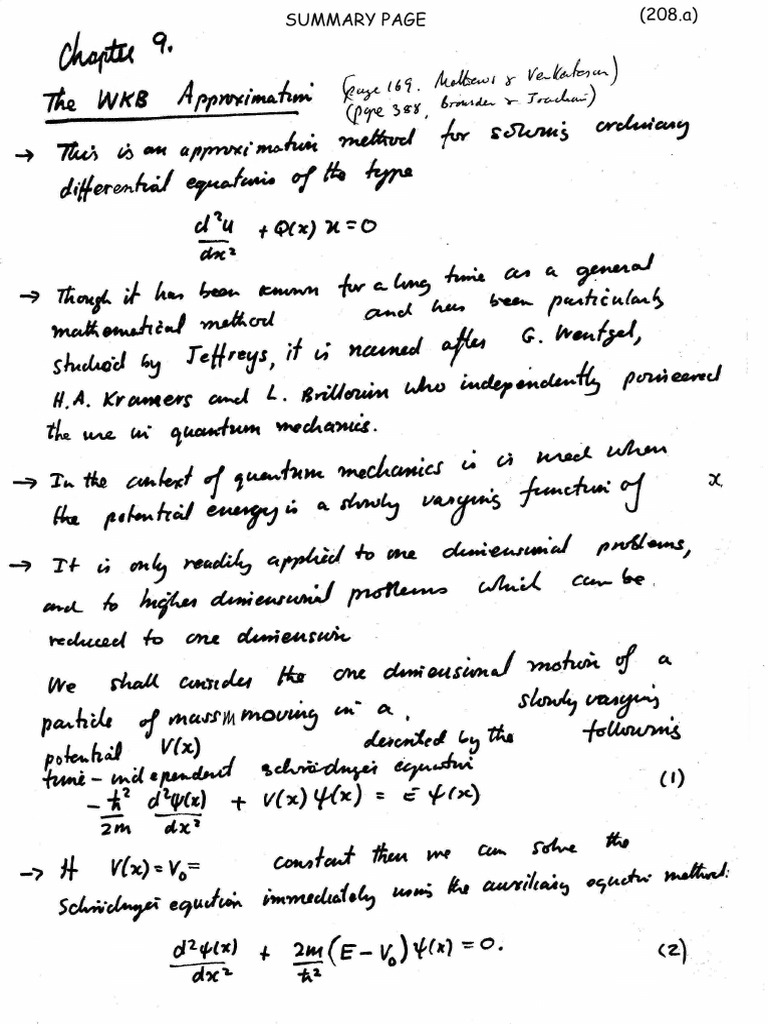 SUMMARY PAGE (208.a)
Chapter 9.
The WKB Approximation (page 169. Mathews & Venkatesan)
(page 388, Bransden & Joachain)
→ This is an approximation method for solving ordinary
differential equations of the type
d²u/dx² + Q(x) u = 0
→ Though it has been known for a long time as a general
mathematical method and has been particularly
studied by Jeffreys, it is named after G. Wentzel,
H.A. Kramers and L. Brillouin who independently pioneered
the use in quantum mechanics.
→ In the context of quantum mechanics is is used when
the potential energy is a slowly varying function of x.
→ It is only readily applied to one dimensional problems,
and to higher dimensional problems which can be
reduced to one dimension
We shall consider the one dimensional motion of a
particle of mass m moving in a, slowly varying
potential V(x) described by the following
time-independent Schrödinger equation
-ħ²/2m d²ψ(x)/dx² + V(x)ψ(x) = E ψ(x) (1)
→ If V(x) = V₀ = constant then we can solve the
Schrödinger equation immediately using the auxiliary equation method:
d²ψ(x)/dx² + 2m/ħ² (E - V₀) ψ(x) = 0. (2)